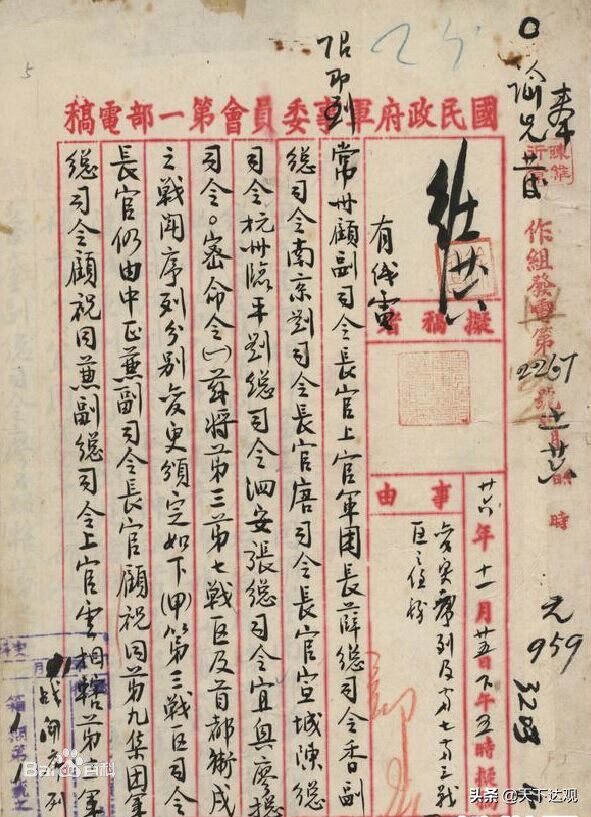 國民政府軍事委員會第一部電稿
奉
諭
作組發電第2267號
時
廿六年十一月廿五日下午五時擬稿
元
959
事由
變更序列及第七第三戰
區之任務
擬稿者
有代電
限即到
常州顧副司令長官上官軍團長薛總司令香副
總司令南京劉司令長官唐司令長官宣城陳總
司令杭州臨平劉總司令泗安張總司令宜興廖總
司令。密命令(一)茲將第三第七戰區及首都衛戍
之戰鬥序列分別變更頒定如下(甲)第三戰區司令
長官仍由中正兼副司令長官顧祝同第九集團軍
總司令顧祝同兼副總司令上官雲相轄第一軍
戰鬥序列
5
Bai 百科
头条 @天下达观